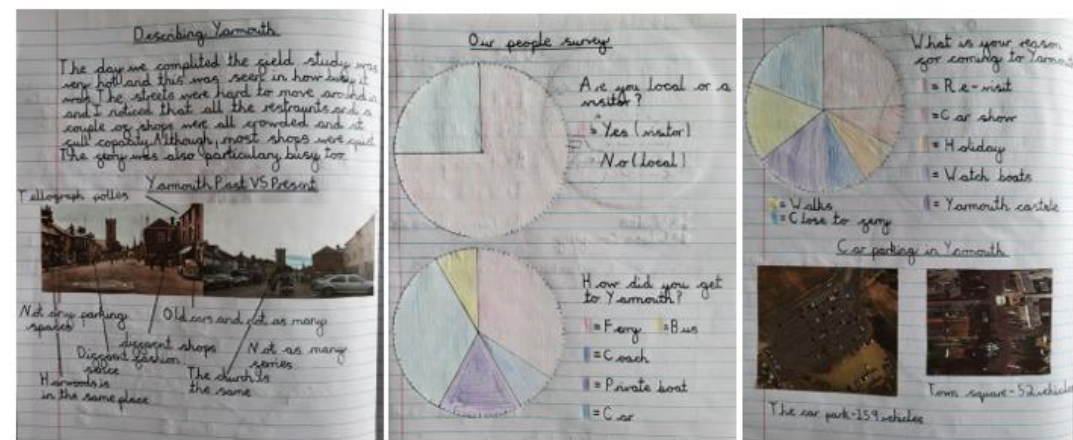 Describing Yarmouth
The day we complited the field study was
very hot and this was seen in how busy it
was. The streets were hard to move around in
and I noticed that all the restraunts and a
couple of shops were all crowded and at
full copatity. Although, most shops were quiet.
The ferry was also particulary busy too.
Yarmouth Past VS Present
Tellograph polles
Not any parking
spaces
Old cars and not as many
different shops
Diffrent fashion
sence
Not as many
ferries
The church is
the same
Harwoods is
in the same place
Our people survey
Are you local or a
visitor?
= Yes (visitor)
= No (local)
How did you get
to Yarmouth?
= Ferry = Bus
= Coach
= Private boat
= Car
What is your reason
for coming to Yarmouth
= Re-visit
= Car show
= Holiday
= Watch boats
= Yarmouth castle
= Walks
= Close to ferry
Car parking in Yarmouth
The car park - 159 vehicles
Town square - 52 vehicles